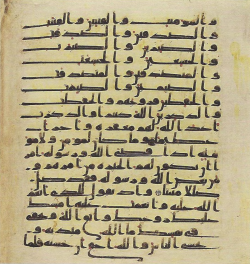 والمومنين والمومنت والقنتين
والقنتت والصدقين و
الصدقت والصبرين
والصبرت والخشعين
والخشعت والمتصدقين
والمتصدقت والصيمين
والصيمت و
الحفظين فروجهم والحفظت
والذكرين الله كثيرا والذكرت
اعد الله لهم مغفرة واجرا
عظيما وما كان لمومن ولا مو
منة اذا قضى الله ورسوله امرا
ان يكون لهم الخيرة من امرهم و
من يعص الله ورسوله فقد ضل
ضللا مبينا واذ تقول للذي انعم
الله عليه وانعمت عليه امسك
عليك زوجك واتق الله وتخفي
في نفسك ما الله مبديه و
تخشى الناس والله احق ان تخشه فلما